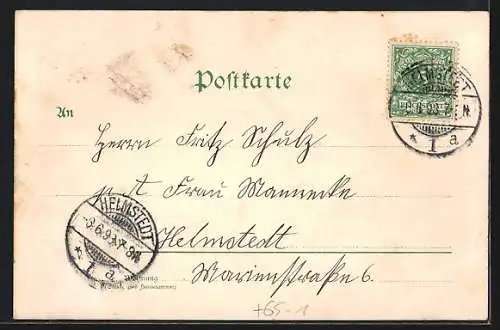 Postkarte
An
Herrn Fritz Schulz
Frau Mannecke
Helmstedt
Marienstraße 6.
HELMSTEDT
* 1 a
HELMSTEDT
* 1 a